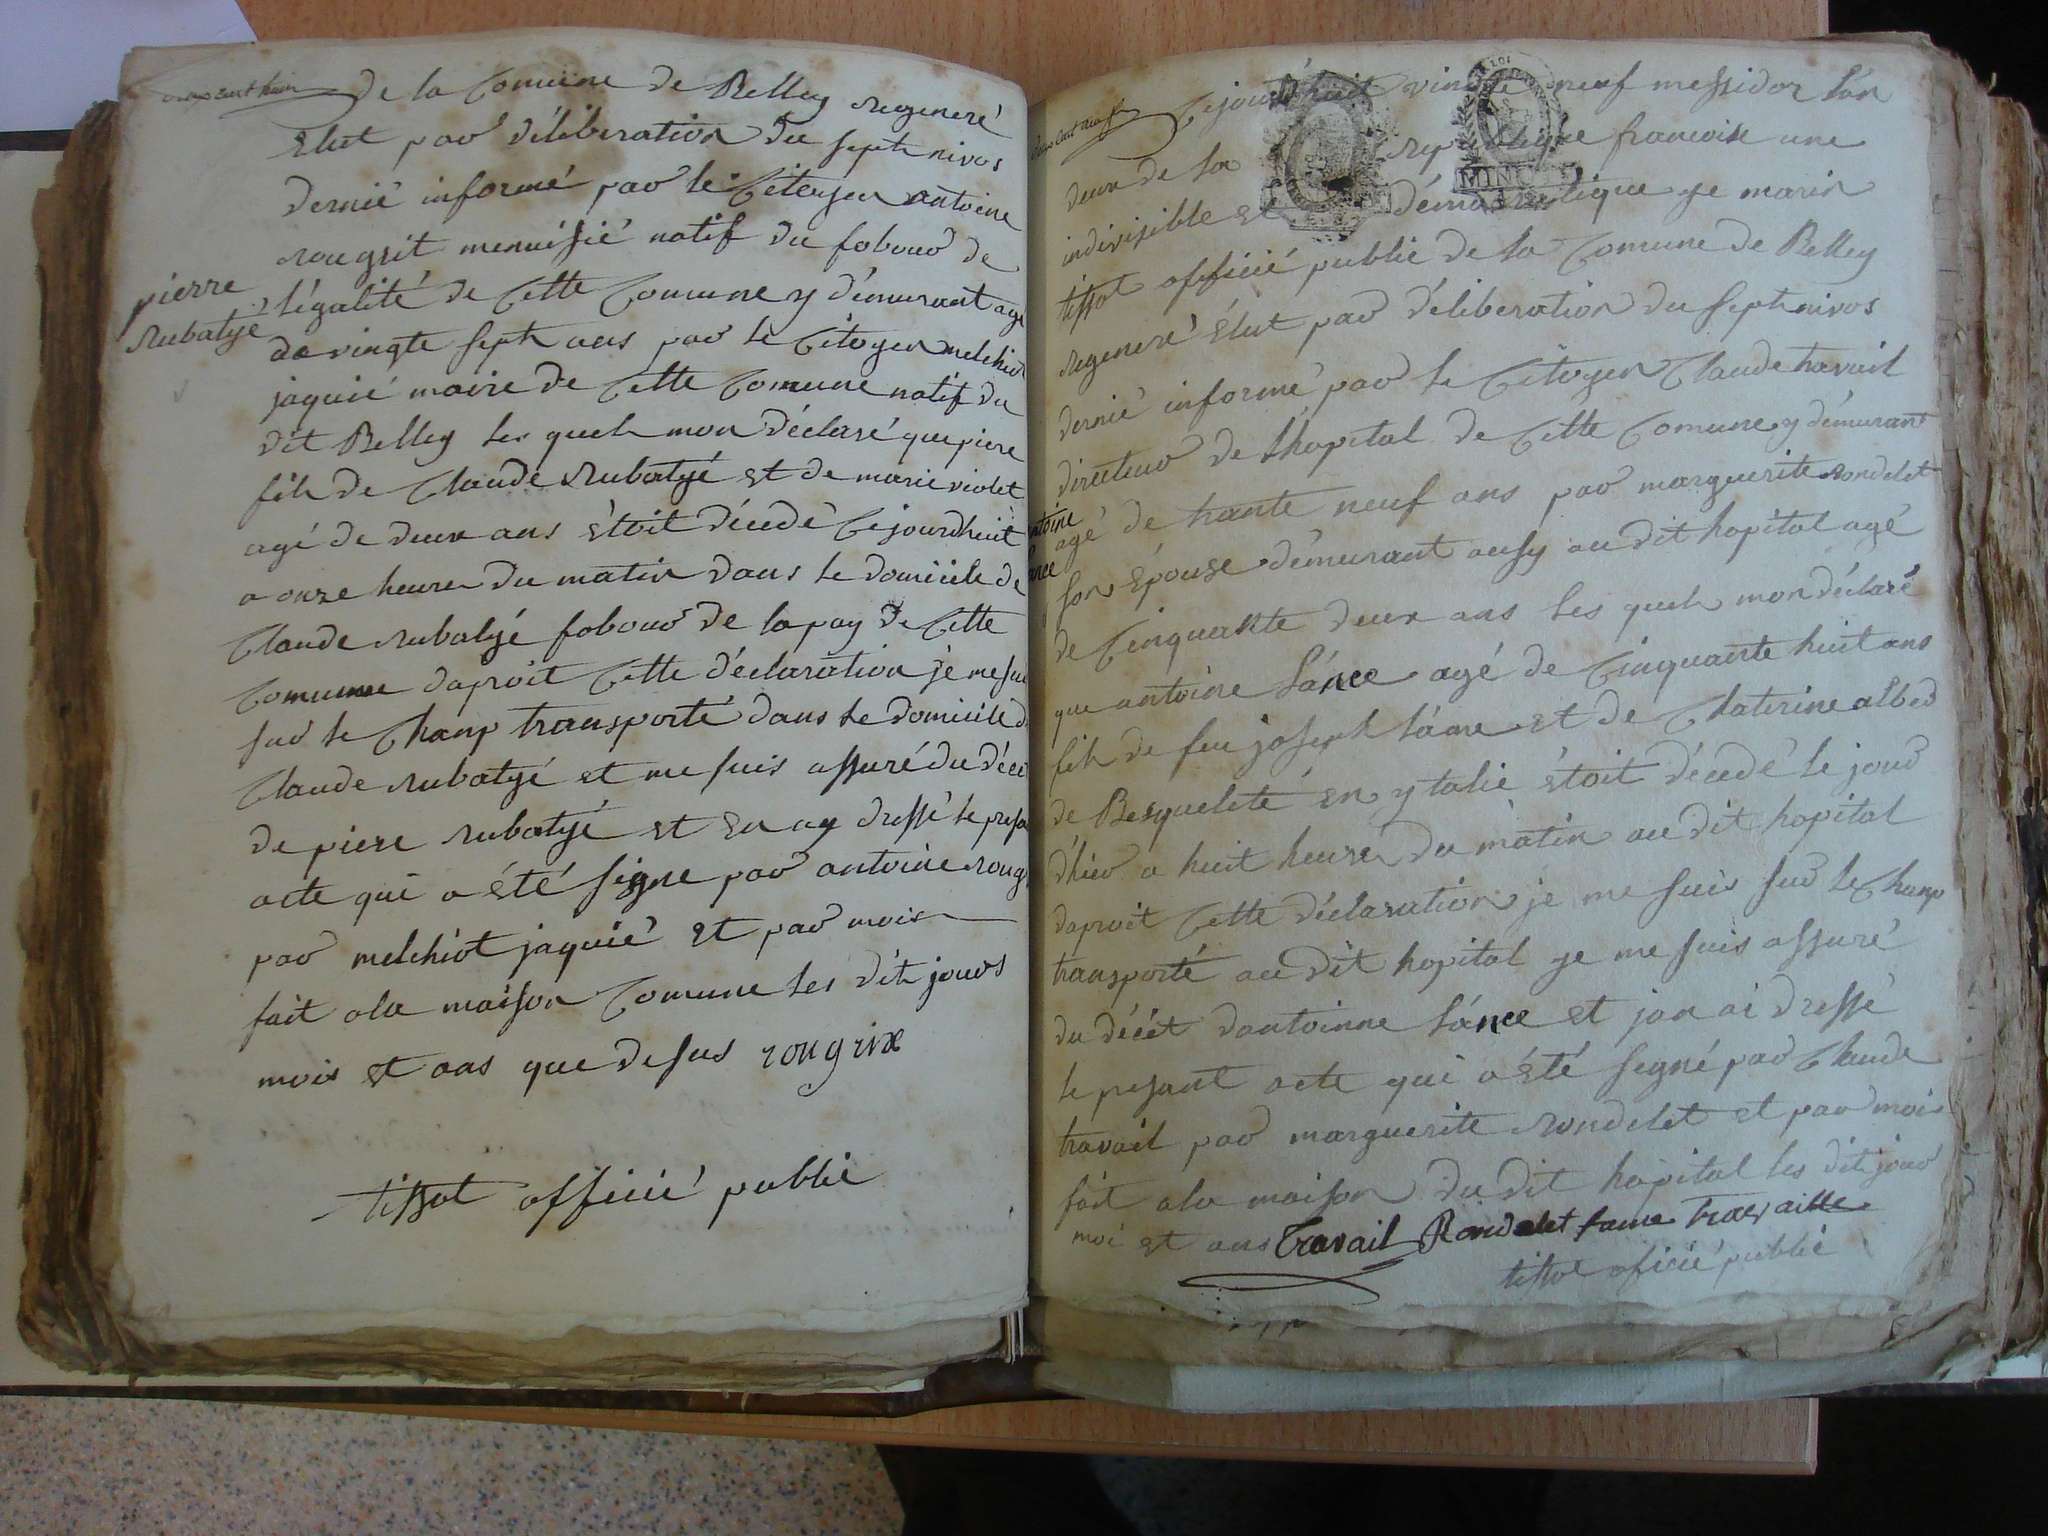 deux cent huit
de la Comune de Belley regeneré
Elut par déliberation du sept nivos
dernié informé par le Citoyen antoine
rougrit menuisié natif du fobour de
pierre
rubatyé
légalité de Cette Comune y démurant agé
de vingte sept ans par le Citoyen melchiot
jaquié maire de Cette Comune natif du
dit Belley les quels mon déclaré que piere
fils de Claude rubatyé et de marie violet
agé de deux ans étoit décedé Cejourdhuit
a onze heures du matin dans le domicile de
Claude rubatyé fobour de la pay de Cette
Comune daproit Cette déclaration je me sui
sur le Champ transporté dans le domicile de
Claude rubatyé et me suis assuré du décé
de piere rubatyé et En ay dressé le presa
acte qui a été signe par antoine roug
par melchiot jaquié et par mois
fait a la maison Comune les dit jours
mois et ans que desus rougrix
tissot officié public
deux cent neuf
Cejourdhuit vingte neuf messidor Lán
deux de la republique francoise une
indivisible et démocratique je marin
MINU
tissot officié public de la Comune de Belley
regeneré élut par déliberation du sept nivos
dernié informé par le Citoyen Claude travail
directeur de Lhopital de Cette Comune y démurant
antoine
lance
agé de trante neuf ans par marguerite rondelet
son Epouse démurant ausy au dit hopital agé
de Cinquante deux ans les quels mon déclaré
que antoine Lánce agé de Cinquante huit ans
fils de feu joseph Lánce et de Chaterine alber
de Besqueleté en ytalie étoit décedé le jour
d'hier a huit heures du matin au dit hopital
daproit Cette déclaration je me suis sur le Champ
transporté au dit hopital je me suis assuré
du décét dantoinne Lánce et jan ai dressé
le presant acte qui a été segné par Claude
travail par marguerite rondelet et par mois
fait a la maison du dit hopital les dit jour
moi et ans Travail Rondelet fame Travaille
tissot oficié public